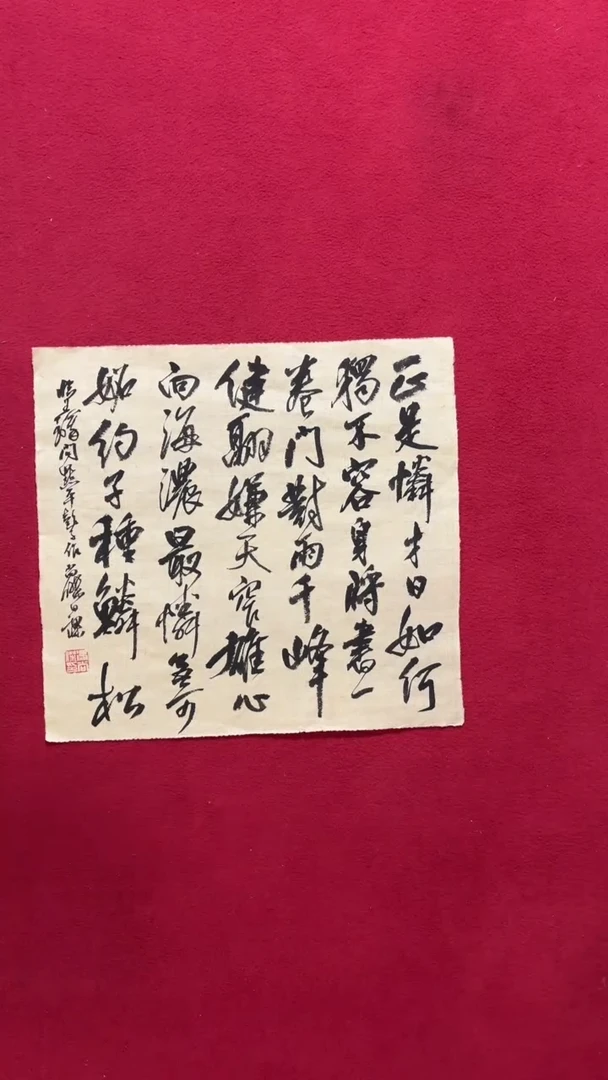 正是憐才日如何
獨不容身將書一
卷門對雨千峰
健翮嫌天窄雄心
向海濃最憐無可
約子種鱗松